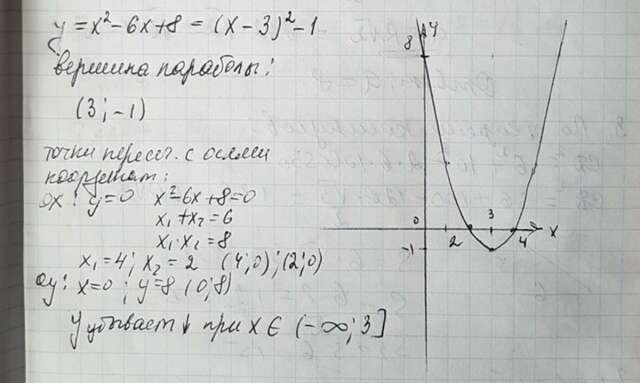 y = x² - 6x + 8 = (x - 3)² - 1
вершина параболы:
(3; -1)
точки перес. с осями
координат:
ox: y = 0 x² - 6x + 8 = 0
x₁ + x₂ = 6
x₁ · x₂ = 8
x₁ = 4; x₂ = 2 (4; 0); (2; 0)
oy: x = 0; y = 8 (0; 8)
y убывает ↓ при x ∈ (-∞; 3]
y
8
0
2
3
4
x
-1